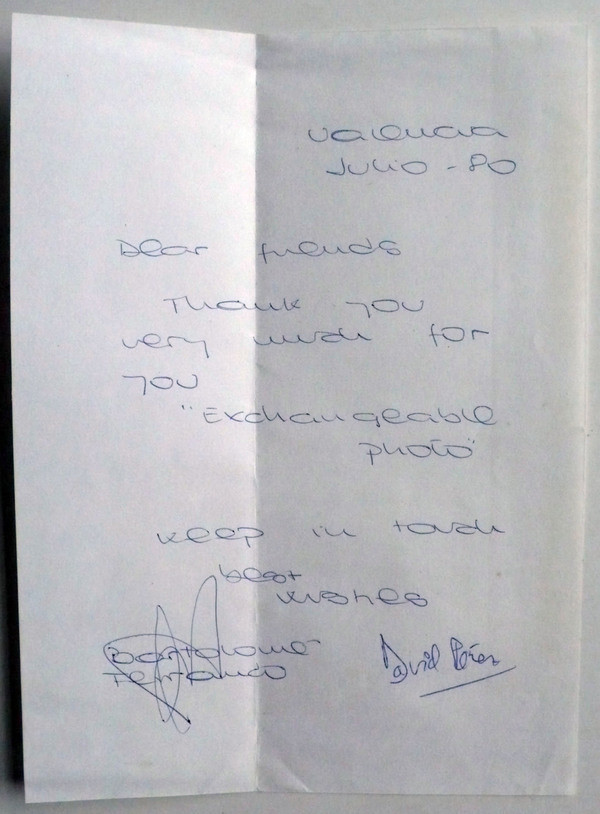 Valencia
Julio - 80
Dear friends
Thank you
very much for
you
"Exchangeable
photo"
Keep in touch
best
wishes
Bartolomé
Ferrando
David Pérez